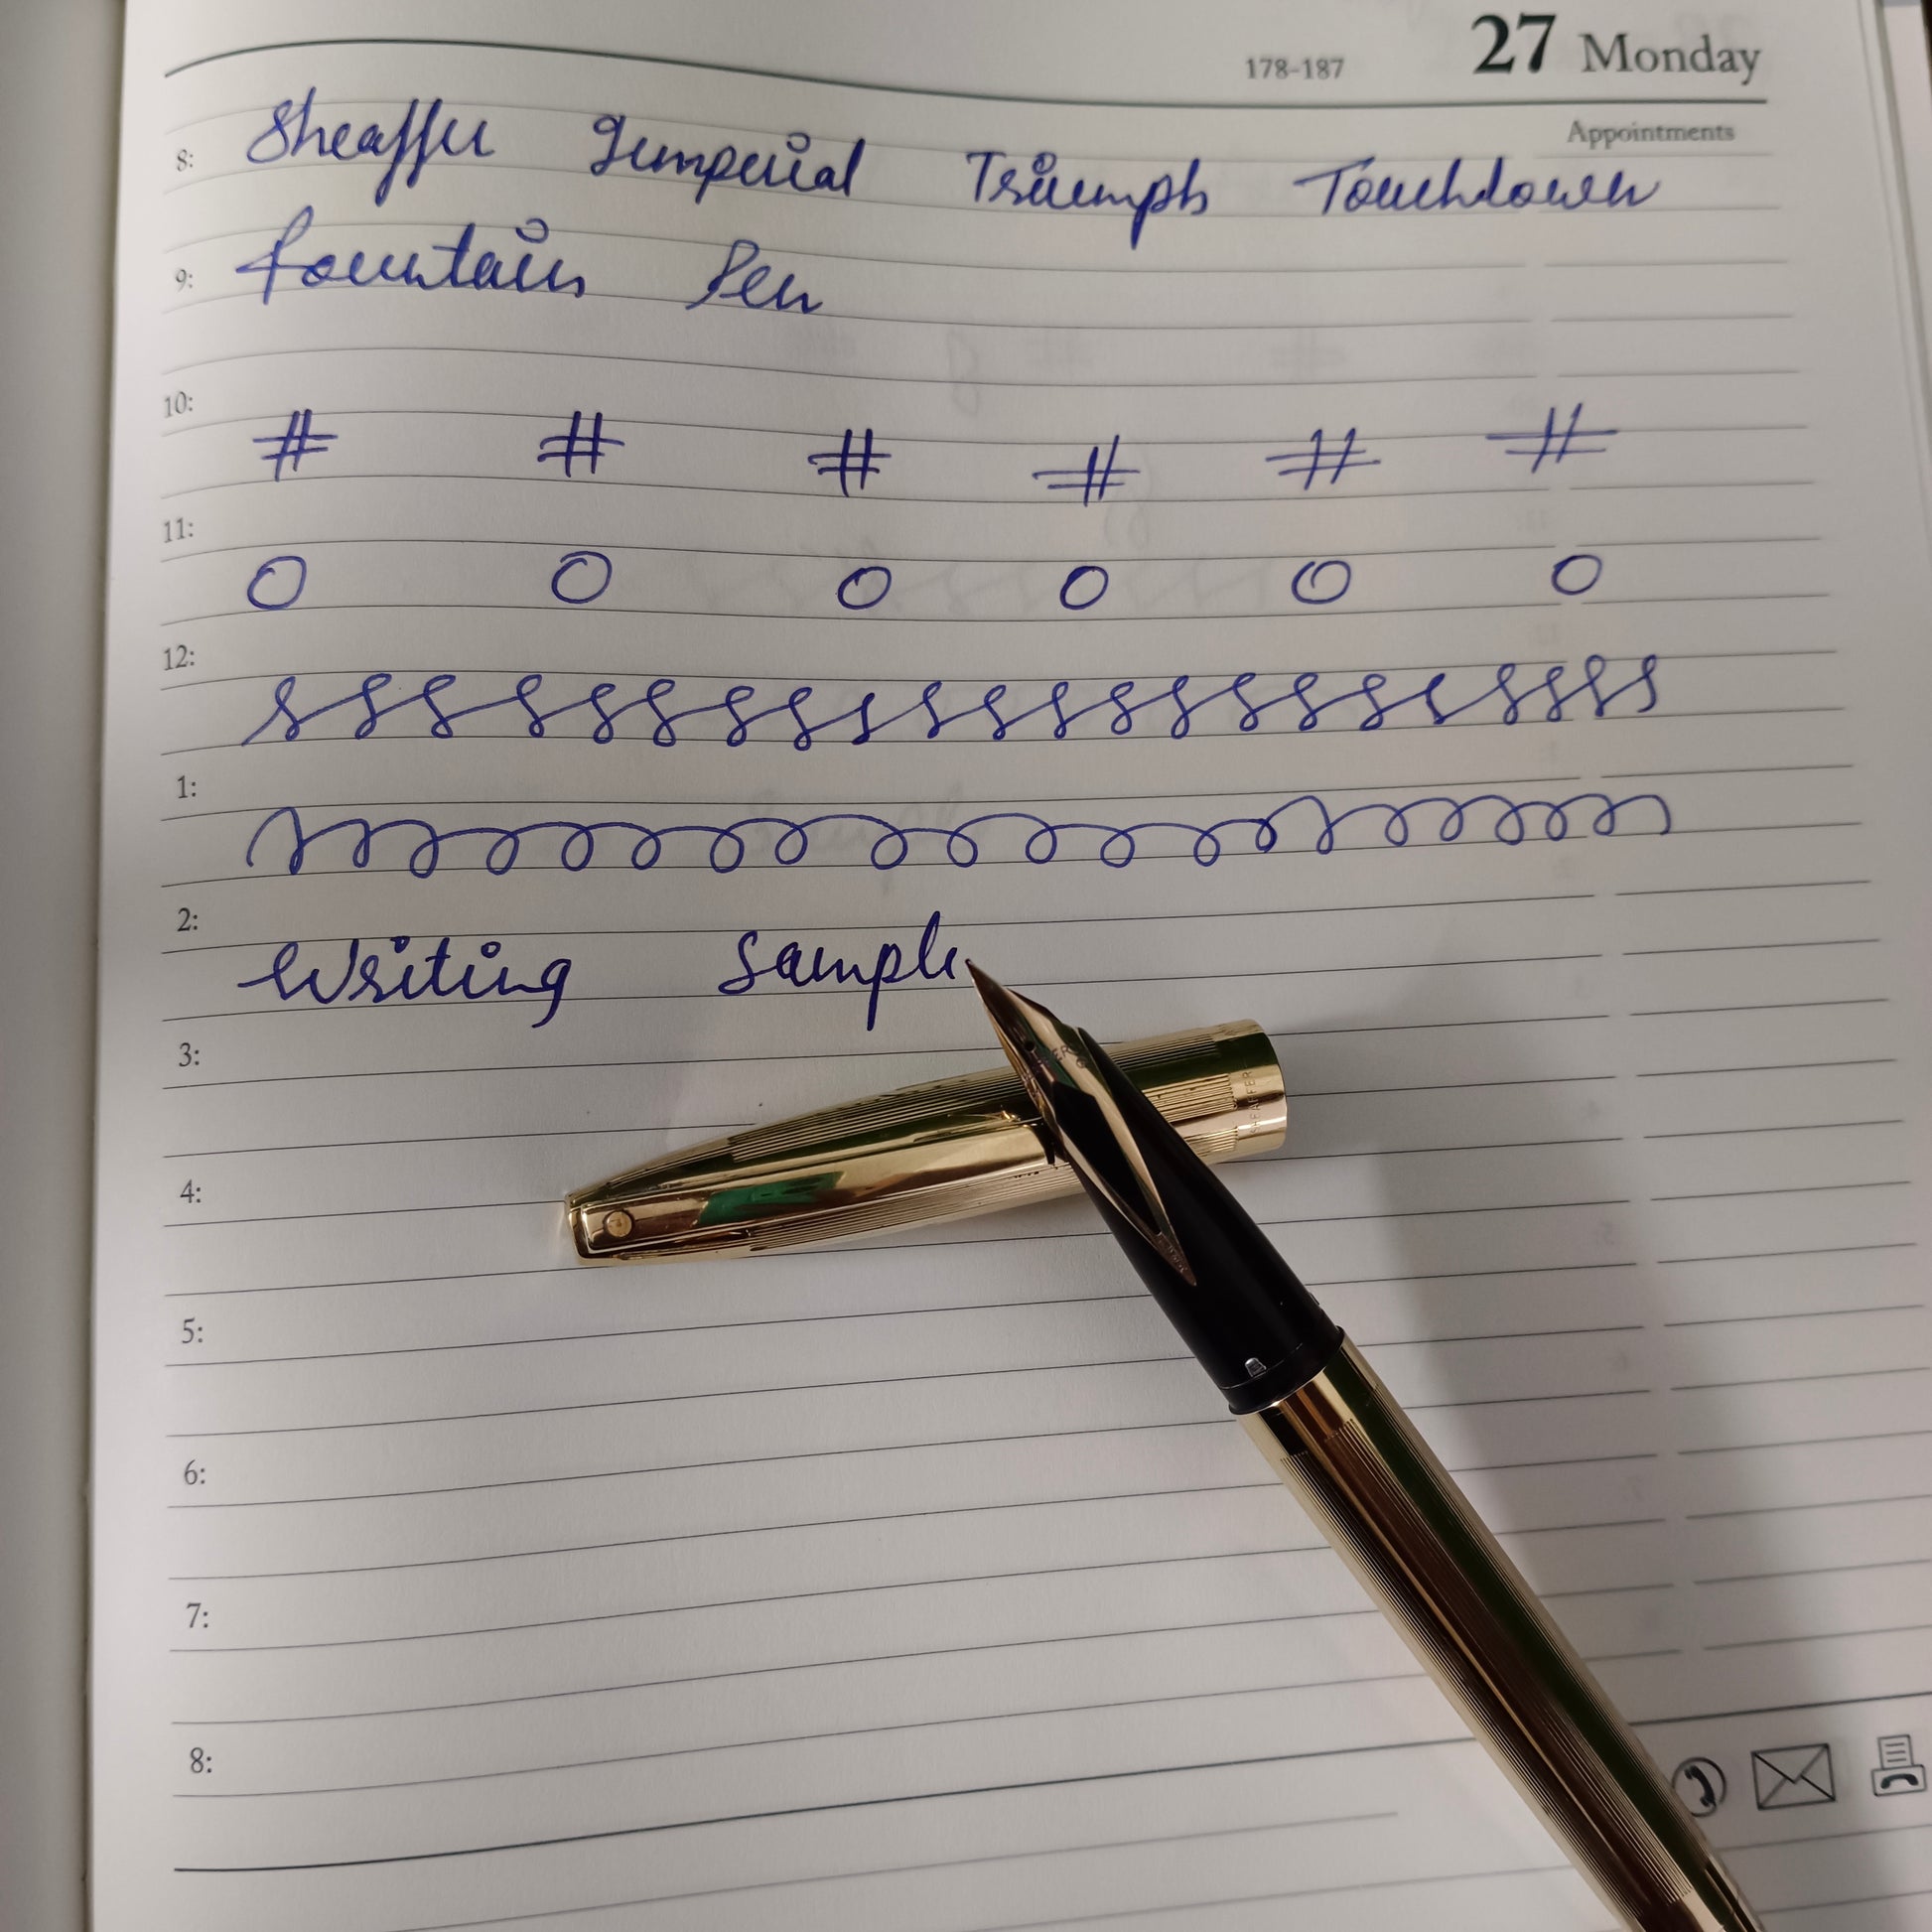 178-187 27 Monday
Appointments
8: Sheaffer Imperial Triumph Touchdown
9: Fountain Pen
10: # # # # # #
11: O O O O O O
12:
1:
2: Writing Sample
3:
SHEAFFER
4:
5:
6:
7:
8: